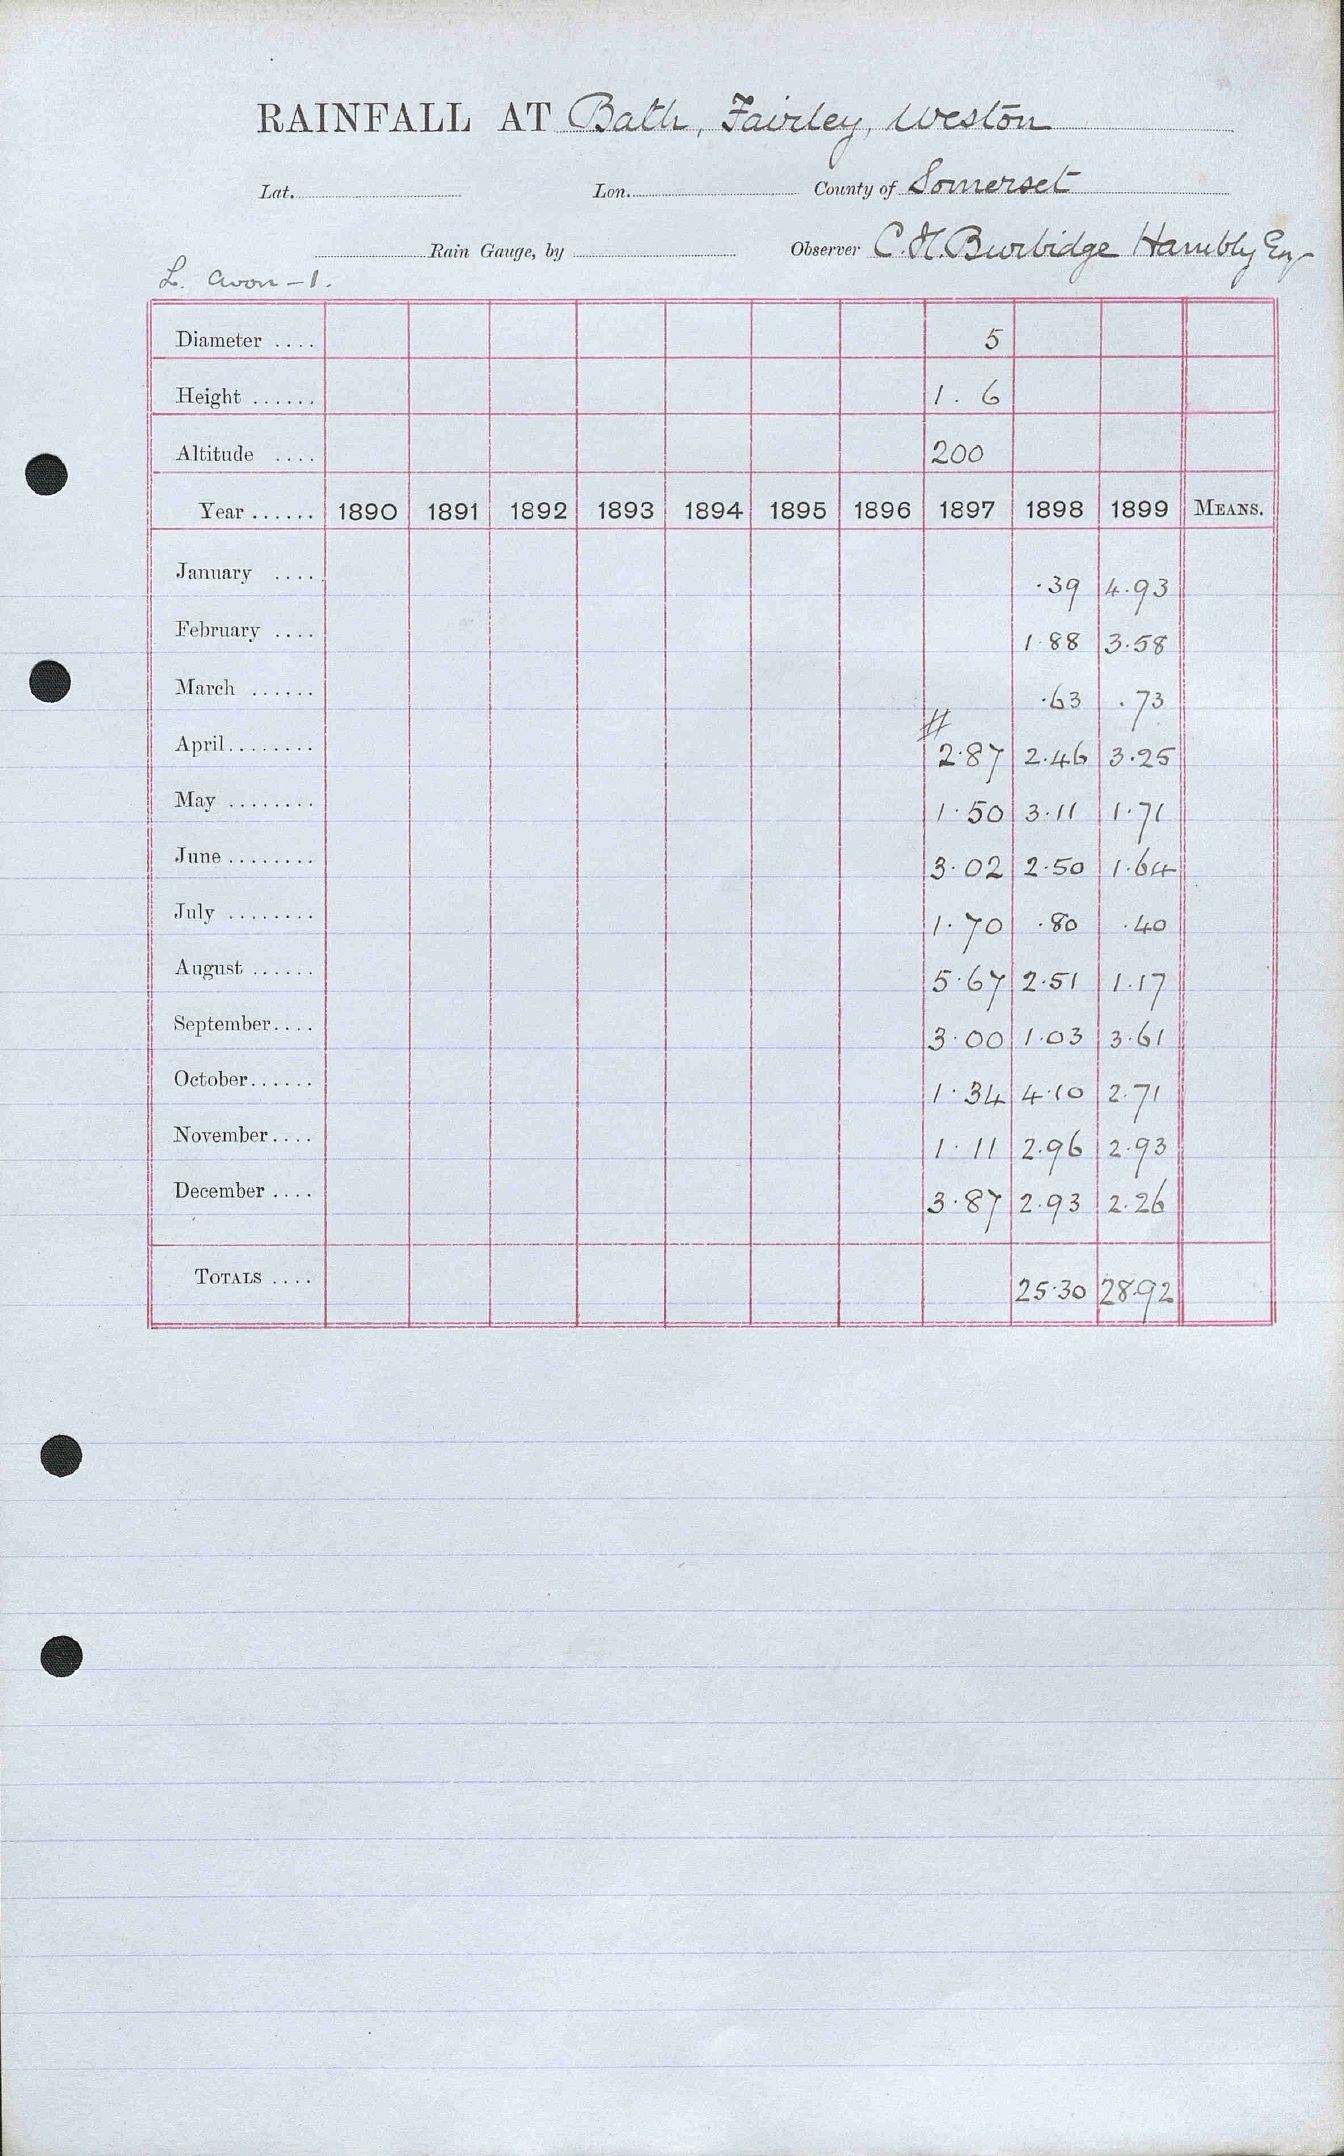 RAINFALL AT Bath, Fairley, Weston
Lat. Lon. County of Somerset
Rain Gauge, by Observer C.H. Burbidge Hambly Esq
L. Avon - 1.
Diameter .... 5
Height ...... 1. 6
Altitude .... 200
Year ...... 1890 1891 1892 1893 1894 1895 1896 1897 1898 1899 MEANS.
January .... .39 4.93
February .... 1.88 3.58
March ...... .63 .73
#
April........ 2.87 2.46 3.25
May ........ 1.50 3.11 1.71
June ........ 3.02 2.50 1.64
July ........ 1.70 .80 .40
August ...... 5.67 2.51 1.17
September.... 3.00 1.03 3.61
October...... 1.34 4.10 2.71
November.... 1.11 2.96 2.93
December .... 3.87 2.93 2.26
TOTALS .... 25.30 28.92